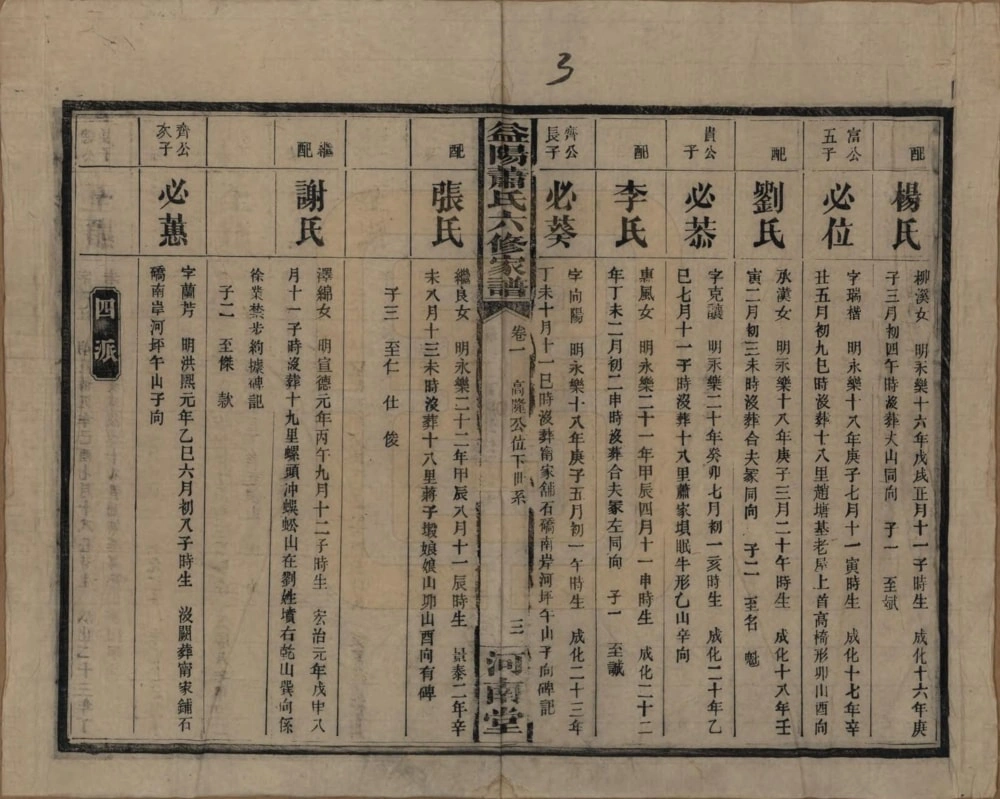 3
配
楊氏
柳溪女 明永樂十六年戊戌正月十一子時生 成化十六年庚
子三月初四午時沒葬大山同向 子一 至斌
富公
五子
必位
字瑞楷 明永樂十八年庚子七月十一寅時生 成化十七年辛
丑五月初九巳時沒葬十八里趙塘基老屋上首高椅形卯山酉向
配
劉氏
承漢女 明永樂十八年庚子三月二十午時生 成化十八年壬
寅二月初三未時沒葬合夫冢同向 子二 至名 魁
貴公
子
必恭
字克讓 明永樂二十年癸卯七月初一亥時生 成化二十年乙
巳七月十一子時沒葬十八里蕭家塤眠牛形乙山辛向
配
李氏
惠風女 明永樂二十一年甲辰四月十一申時生 成化二十二
年丁未二月初二申時沒葬合夫冢左同向 子一 至誠
齊公
長子
必葵
字向陽 明永樂十八年庚子五月初一午時生 成化二十三年
丁未十月十一巳時沒葬甯家舖石礄南岸河坪午山子向碑記
益陽蕭氏六修家譜
卷一 高隆公位下世系
三
河南堂
配
張氏
繼良女 明永樂二十二年甲辰八月十一辰時生 景泰二年辛
未八月十三未時沒葬十八里蔣子塅娘娘山卯山酉向有碑
子三 至仁 仕 俊
繼
配
謝氏
澤綿女 明宣德元年丙午九月十二子時生 宏治元年戊申八
月十一子時沒葬十九里螺頭沖蜈蚣山在劉姓墳右乾山巽向係
徐業禁步約據碑記
子二 至傑 欽
齊公
次子
必蕙
字蘭芳 明洪熙元年乙巳六月初八子時生 沒闕葬甯家鋪石
礄南岸河坪午山子向
四派